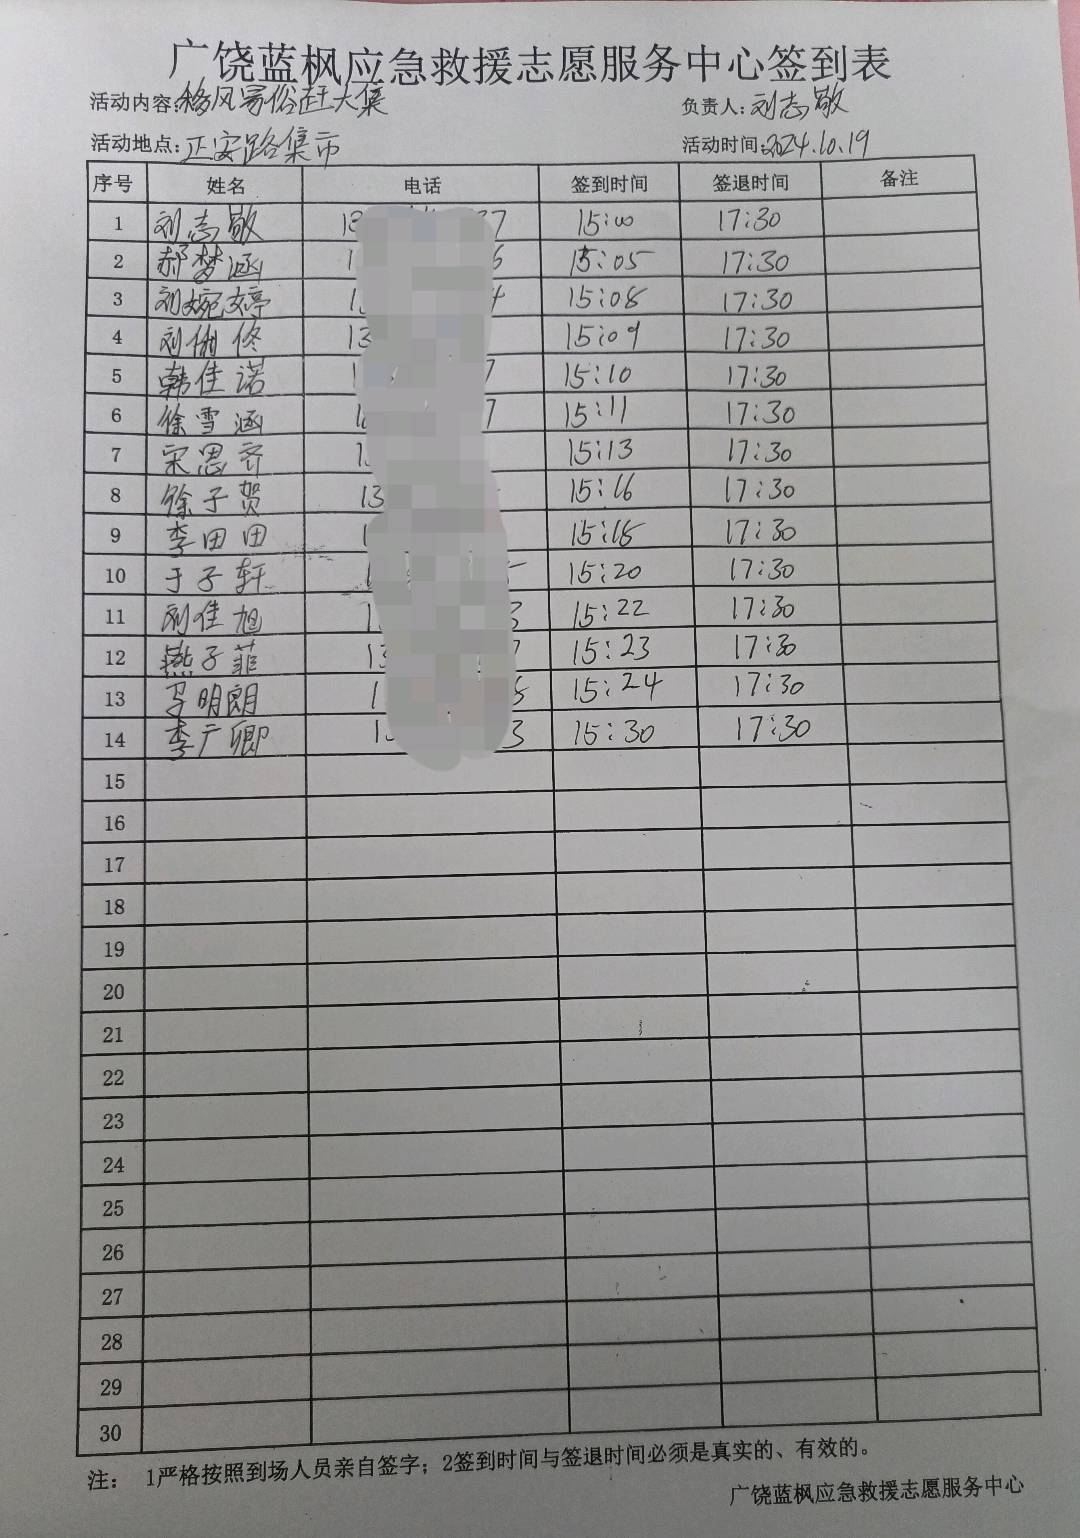 广饶蓝枫应急救援志愿服务中心签到表
活动内容:移风易俗赶大集 负责人:刘志敬
活动地点:正安路集市 活动时间:2024.10.19
序号 姓名 电话 签到时间 签退时间 备注
1 刘志敬 15:00 17:30
2 郝梦涵 15:05 17:30
3 刘婉婷 15:08 17:30
4 刘佟 15:09 17:30
5 韩佳诺 15:10 17:30
6 徐雪涵 15:11 17:30
7 宋思齐 15:13 17:30
8 徐子贺 15:16 17:30
9 李田田 15:18 17:30
10 于子轩 15:20 17:30
11 刘佳旭 15:22 17:30
12 燕子菲 15:23 17:30
13 明朗 15:24 17:30
14 李广卿 15:30 17:30
15
16
17
18
19
20
21
22
23
24
25
26
27
28
29
30
注: 1严格按照到场人员亲自签字;2签到时间与签退时间必须是真实的、有效的。
广饶蓝枫应急救援志愿服务中心